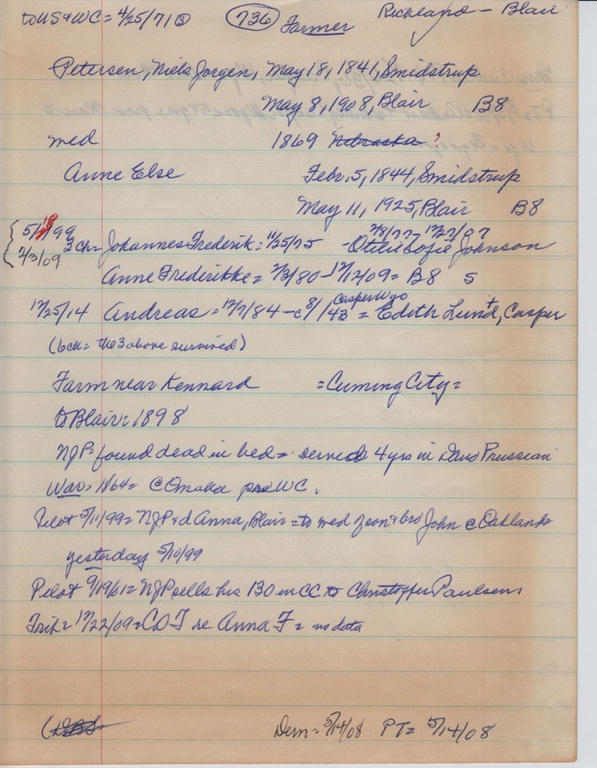 to US & WC = 4/25/71 (736) Farmer Richland - Blair
Petersen, Niels Jorgen, May 18, 1841, Smidstrup
May 8, 1908, Blair B8
med 1869 Nebraska?
Anne Else Febr. 5, 1844, Smidstrup
May 11, 1925, Blair B8
5/10/99
3 ch = Johannes Frederik = 11/25/75 - Otilie Sofie Johnson
2/3/09
Anne Frederikke = 2/3/80 - 12/12/09 = B8 5
Casper Wyo
12/25/14 Andreas = 12/7/84 - c 8/1/43 = Edith Lund, Casper
(6 ch = the 3 above survived)
Farm near Kennard = Cuming City =
to Blair = 1898
NJP = found dead in bed = served 4 yrs in Dano Prussian
War = 1864 = @ Omaha WC.
Pilot 5/11/99 = NJP & d Anna, Blair = to wed of son & bro John @ Oakland
yesterday 5/10/99
Pilot 9/19/01 = NJP sells his 130 in CC to Christoffer Paulsen
Trib = 12/22/09 = CDT re Anna F = no data
Dem = 5/14/08 PT = 5/14/08